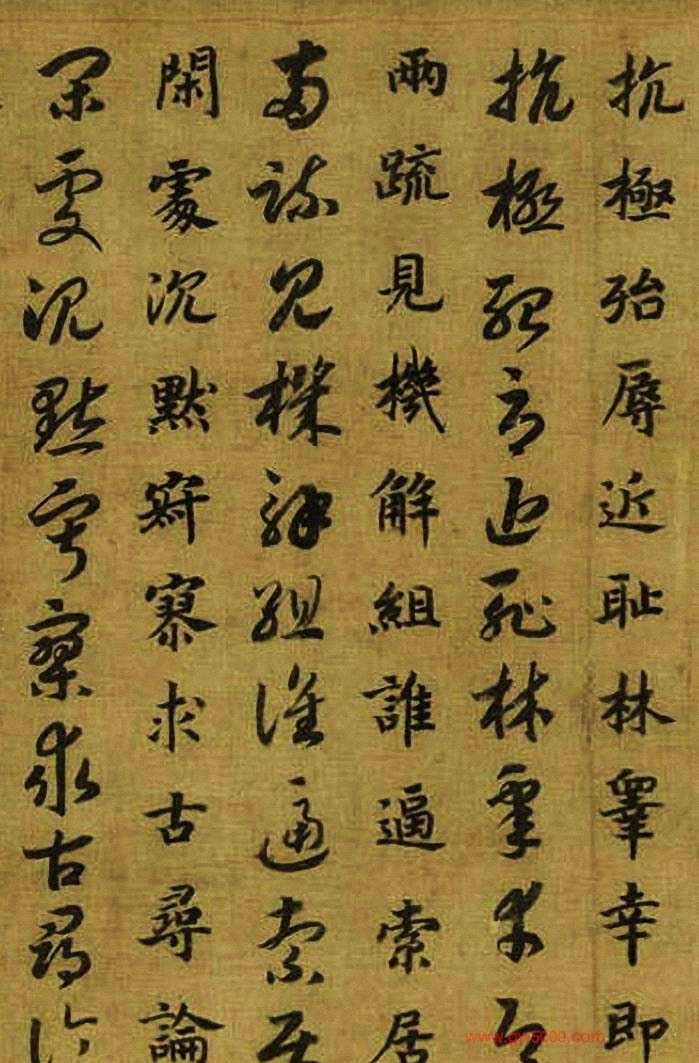 抗極殆辱近耻林皋幸即
抗極殆辱近耻林皋幸即
兩疏見機解組誰逼索居
兩疏見機解組誰逼索居
閑處沉默寂寥求古尋論
閑處沉默寂寥求古尋論